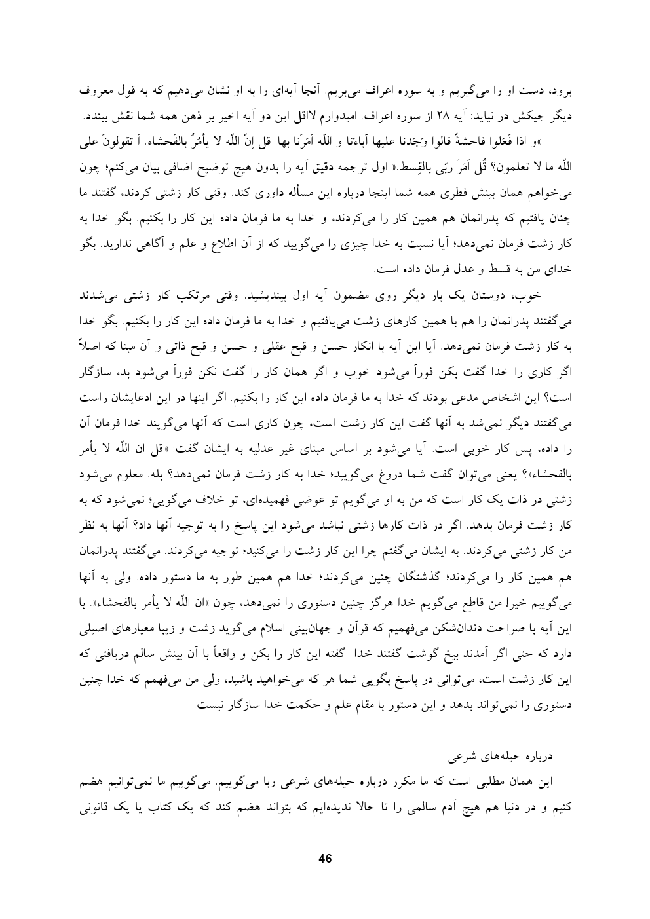 برود، دست او را می‌گیریم و به سوره اعراف می‌بریم. آنجا آیه‌ای را به او نشان می‌دهیم که به قول معروف
دیگر جیکش در نیاید: آیه ۲۸ از سوره اعراف. امیدوارم لااقل این دو آیه اخیر بر ذهن همه شما نقش ببندد.
»و اذا فَعَلوا فاحشةً قالوا وَجَدنا علیها آباءَنا و اللّه اَمَرَنا بها. قل اِنّ اللّه لا یأمُرُ بالفَحشاء، أ تقولونَ علی
اللّه ما لا تعلمون؟ قُل اَمَرَ ربّی بالقِسط.« اول ترجمه دقیق آیه را بدون هیچ توضیح اضافی بیان می‌کنم؛ چون
می‌خواهم همان بینش فطری همه شما اینجا درباره این مسأله داوری کند. وقتی کار زشتی کردند، گفتند ما
چنان یافتیم که پدرانمان هم همین کار را می‌کردند، و خدا به ما فرمان داده این کار را بکنیم. بگو خدا به
کار زشت فرمان نمی‌دهد؛ آیا نسبت به خدا چیزی را می‌گویید که از آن اطلاع و علم و آگاهی ندارید. بگو
خدای من به قسط و عدل فرمان داده است.
خوب، دوستان یک بار دیگر روی مضمون آیه اول بیندیشید. وقتی مرتکب کار زشتی می‌شدند
می‌گفتند پدرانمان را هم با همین کارهای زشت می‌یافتیم و خدا به ما فرمان داده این کار را بکنیم. بگو خدا
به کار زشت فرمان نمی‌دهد. آیا این آیه با انکار حسن و قبح عقلی و حسن و قبح ذاتی و آن مبنا که اصلاً
اگر کاری را خدا گفت بکن فوراً می‌شود خوب و اگر همان کار را گفت نکن فوراً می‌شود بد، سازگار
است؟ این اشخاص مدعی بودند که خدا به ما فرمان داده این کار را بکنیم. اگر اینها در این ادعایشان راست
می‌گفتند دیگر نمی‌شد به آنها گفت این کار زشت است، چون کاری است که آنها می‌گویند خدا فرمان آن
را داده، پس کار خوبی است. آیا می‌شود بر اساس مبنای غیر عدلیه به ایشان گفت «قل ان اللّه لا یأمر
بالفحشاء»؟ یعنی می‌توان گفت شما دروغ می‌گویید؛ خدا به کار زشت فرمان نمی‌دهد؟ بله، معلوم می‌شود
زشتی در ذات یک کار است که من به او می‌گویم تو عوضی فهمیده‌ای، تو خلاف می‌گویی؛ نمی‌شود که به
کار زشت فرمان بدهد. اگر در ذات کارها زشتی نباشد می‌شود این پاسخ را به توجیه آنها داد؟ آنها به نظر
من کار زشتی می‌کردند. به ایشان می‌گفتم چرا این کار زشت را می‌کنید؛ توجیه می‌کردند. می‌گفتند پدرانمان
هم همین کار را می‌کردند؛ گذشتگان چنین می‌کردند؛ خدا هم همین طور به ما دستور داده. ولی به آنها
می‌گوییم خیر! من قاطع می‌گویم خدا هرگز چنین دستوری را نمی‌دهد، چون «ان اللّه لا یأمر بالفحشاء». با
این آیه با صراحت دندان‌شکن می‌فهمیم که قرآن و جهان‌بینی اسلام می‌گوید زشت و زیبا معیارهای اصیلی
دارد که حتی اگر آمدند بیخ گوشت گفتند خدا گفته این کار را بکن و واقعاً با آن بینش سالم دریافتی که
این کار زشت است، می‌توانی در پاسخ بگویی شما هر که می‌خواهید باشید، ولی من می‌فهمم که خدا چنین
دستوری را نمی‌تواند بدهد و این دستور با مقام علم و حکمت خدا سازگار نیست.
درباره حیله‌های شرعی
این همان مطلبی است که ما مکرر درباره حیله‌های شرعی ربا می‌گوییم. می‌گوییم ما نمی‌توانیم هضم
کنیم و در دنیا هم هیچ آدم سالمی را تا حالا ندیده‌ایم که بتواند هضم کند که یک کتاب یا یک قانونی
46